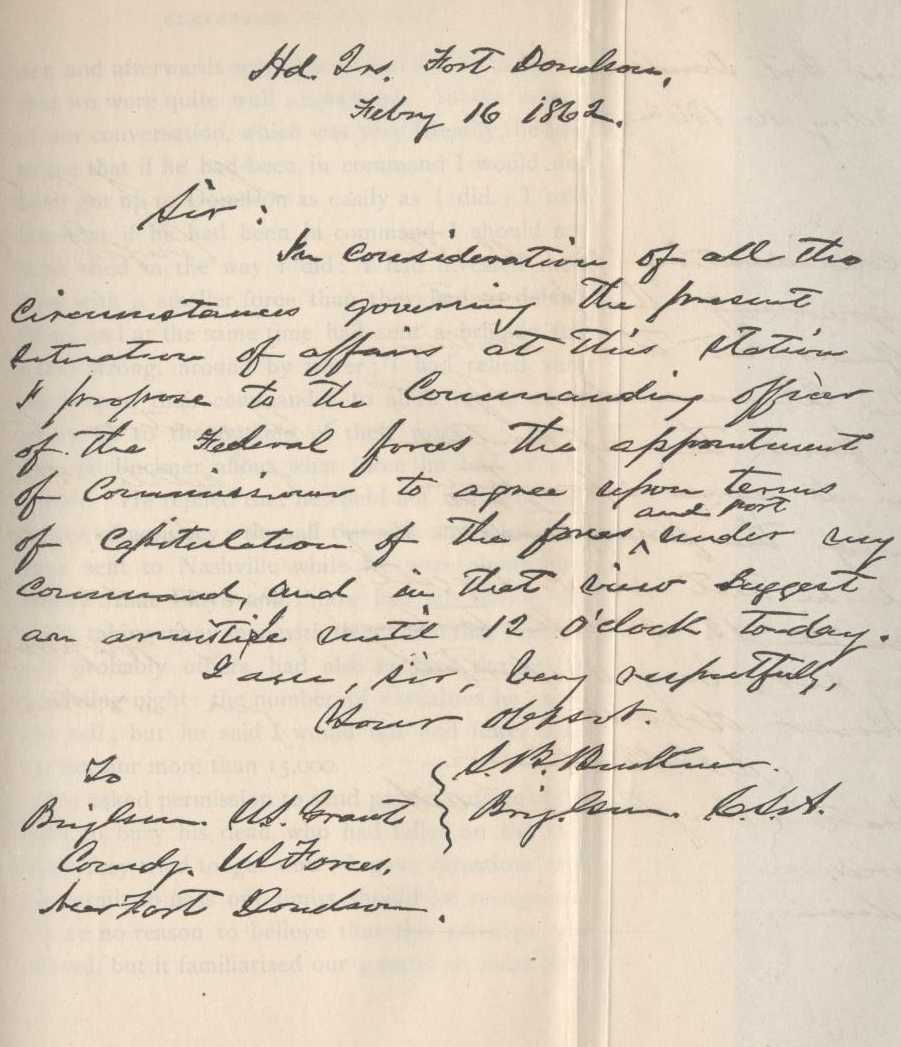 Hd. Qrs. Fort Donelson,
Febry 16 1862.
Sir:
In consideration of all the
circumstances governing the present
situation of affairs at this station
I propose to the Commanding officer
of the Federal forces the appointment
of Commissioners to agree upon terms
and Post
of capitulation of the forces ^ under my
command, and in that view suggest
an armistice until 12 o'clock to-day.
I am, sir, very respectfully,
Your obt svt.
S. B. Buckner.
Brig. Gen. C.S.A.
To
Brig Gen. U.S. Grant
Comdg. US Forces,
Near Fort Donelson.